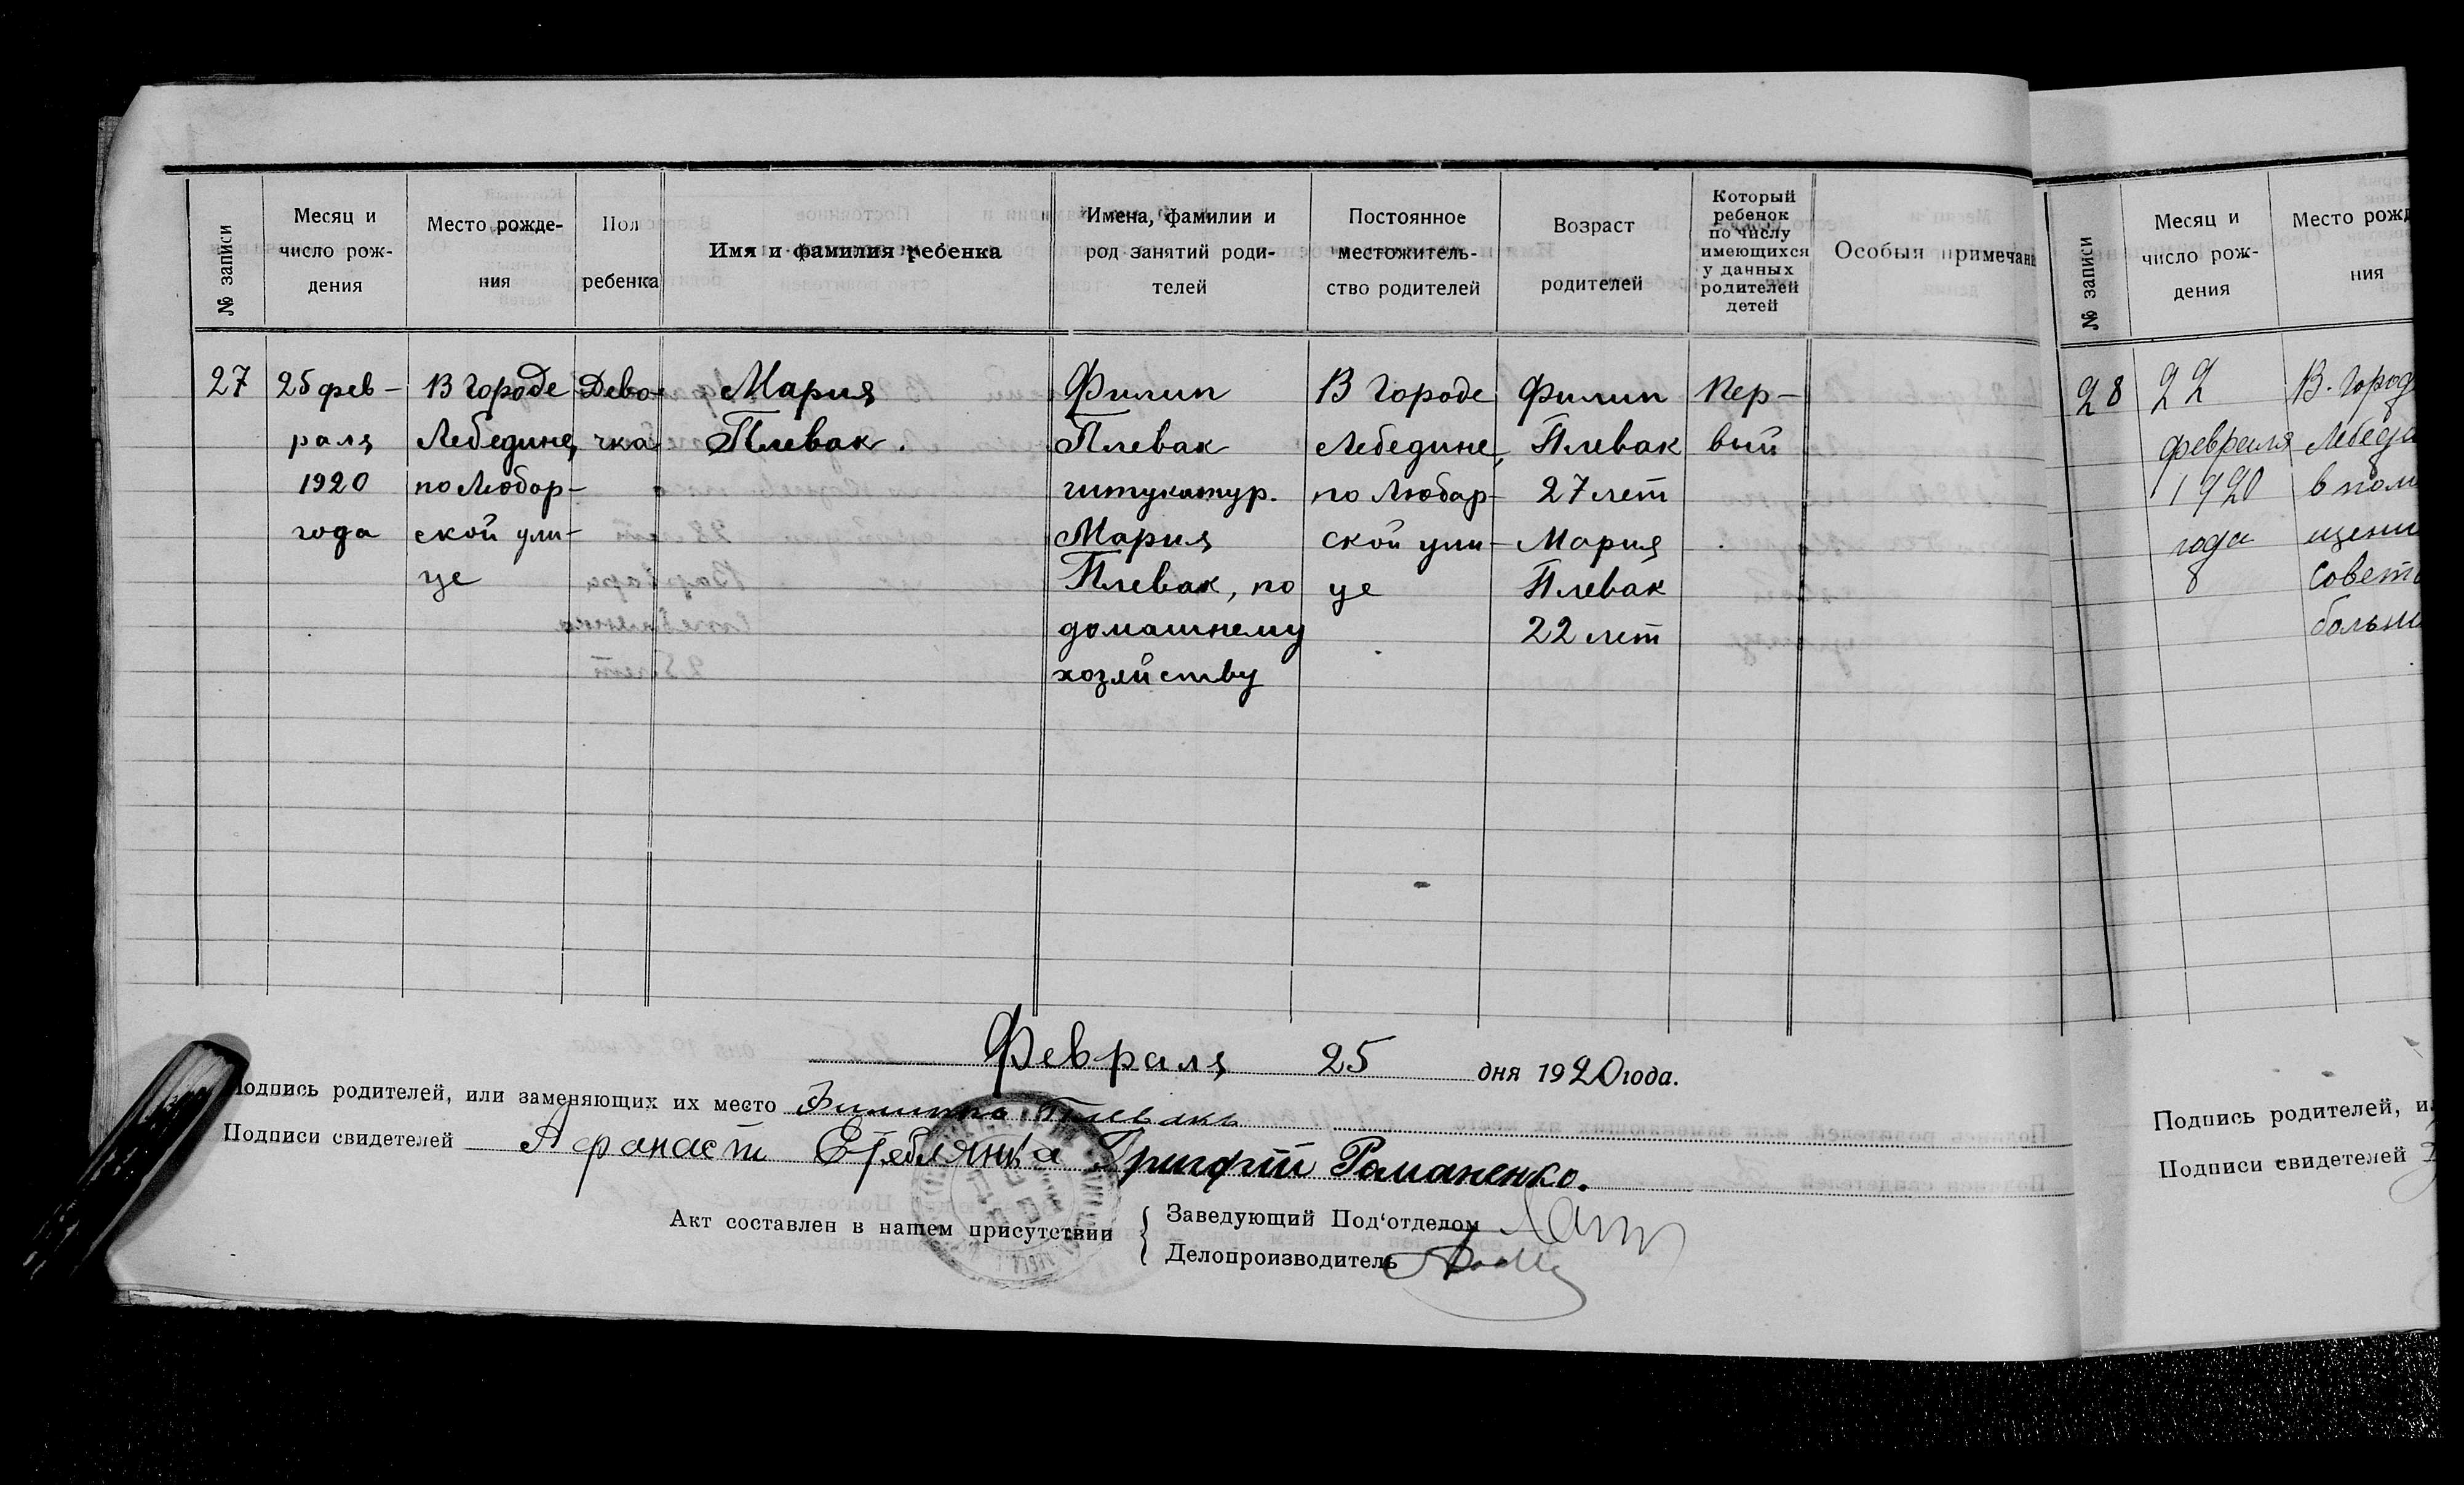 № записи
Месяц и
число рож-
дения
Место рожде-
ния
Пол
ребенка
Имя и фамилия ребенка
Имена, фамилии и
род занятий роди-
телей
Постоянное
местожитель-
ство родителей
Возраст
родителей
Который
ребенок
по числу
имеющихся
у данных
родителей
детей
Особыя примечан
27
25 фев-
раля
1920
года
В городе
Лебедине,
по Любар-
ской ули-
це
Дево-
чка
Мария
Плевак.
Филип
Плевак
штукатур.
Мария
Плевак, по
домашнему
хозяйству
В городе
Лебедине,
по Любар-
ской ули-
це
Филип
Плевак
27 лет
Мария
Плевак
22 лет
Пер-
вый
Февраля 25 дня 1920 года.
Подпись родителей, или заменяющих их место Филиппъ Плевакъ
Подписи свидетелей Афанасти Романенко.
Акт составлен в нашем присутствии
Заведующий Под'отделом
Делопроизводитель
№ записи
Месяц и
число рож-
дения
Место рожд
ния
28
22
февраля
1920
года
В. город
Лебеди
в поме
щени
Совет
больн
Подпись родителей, и
Подписи свидетелей